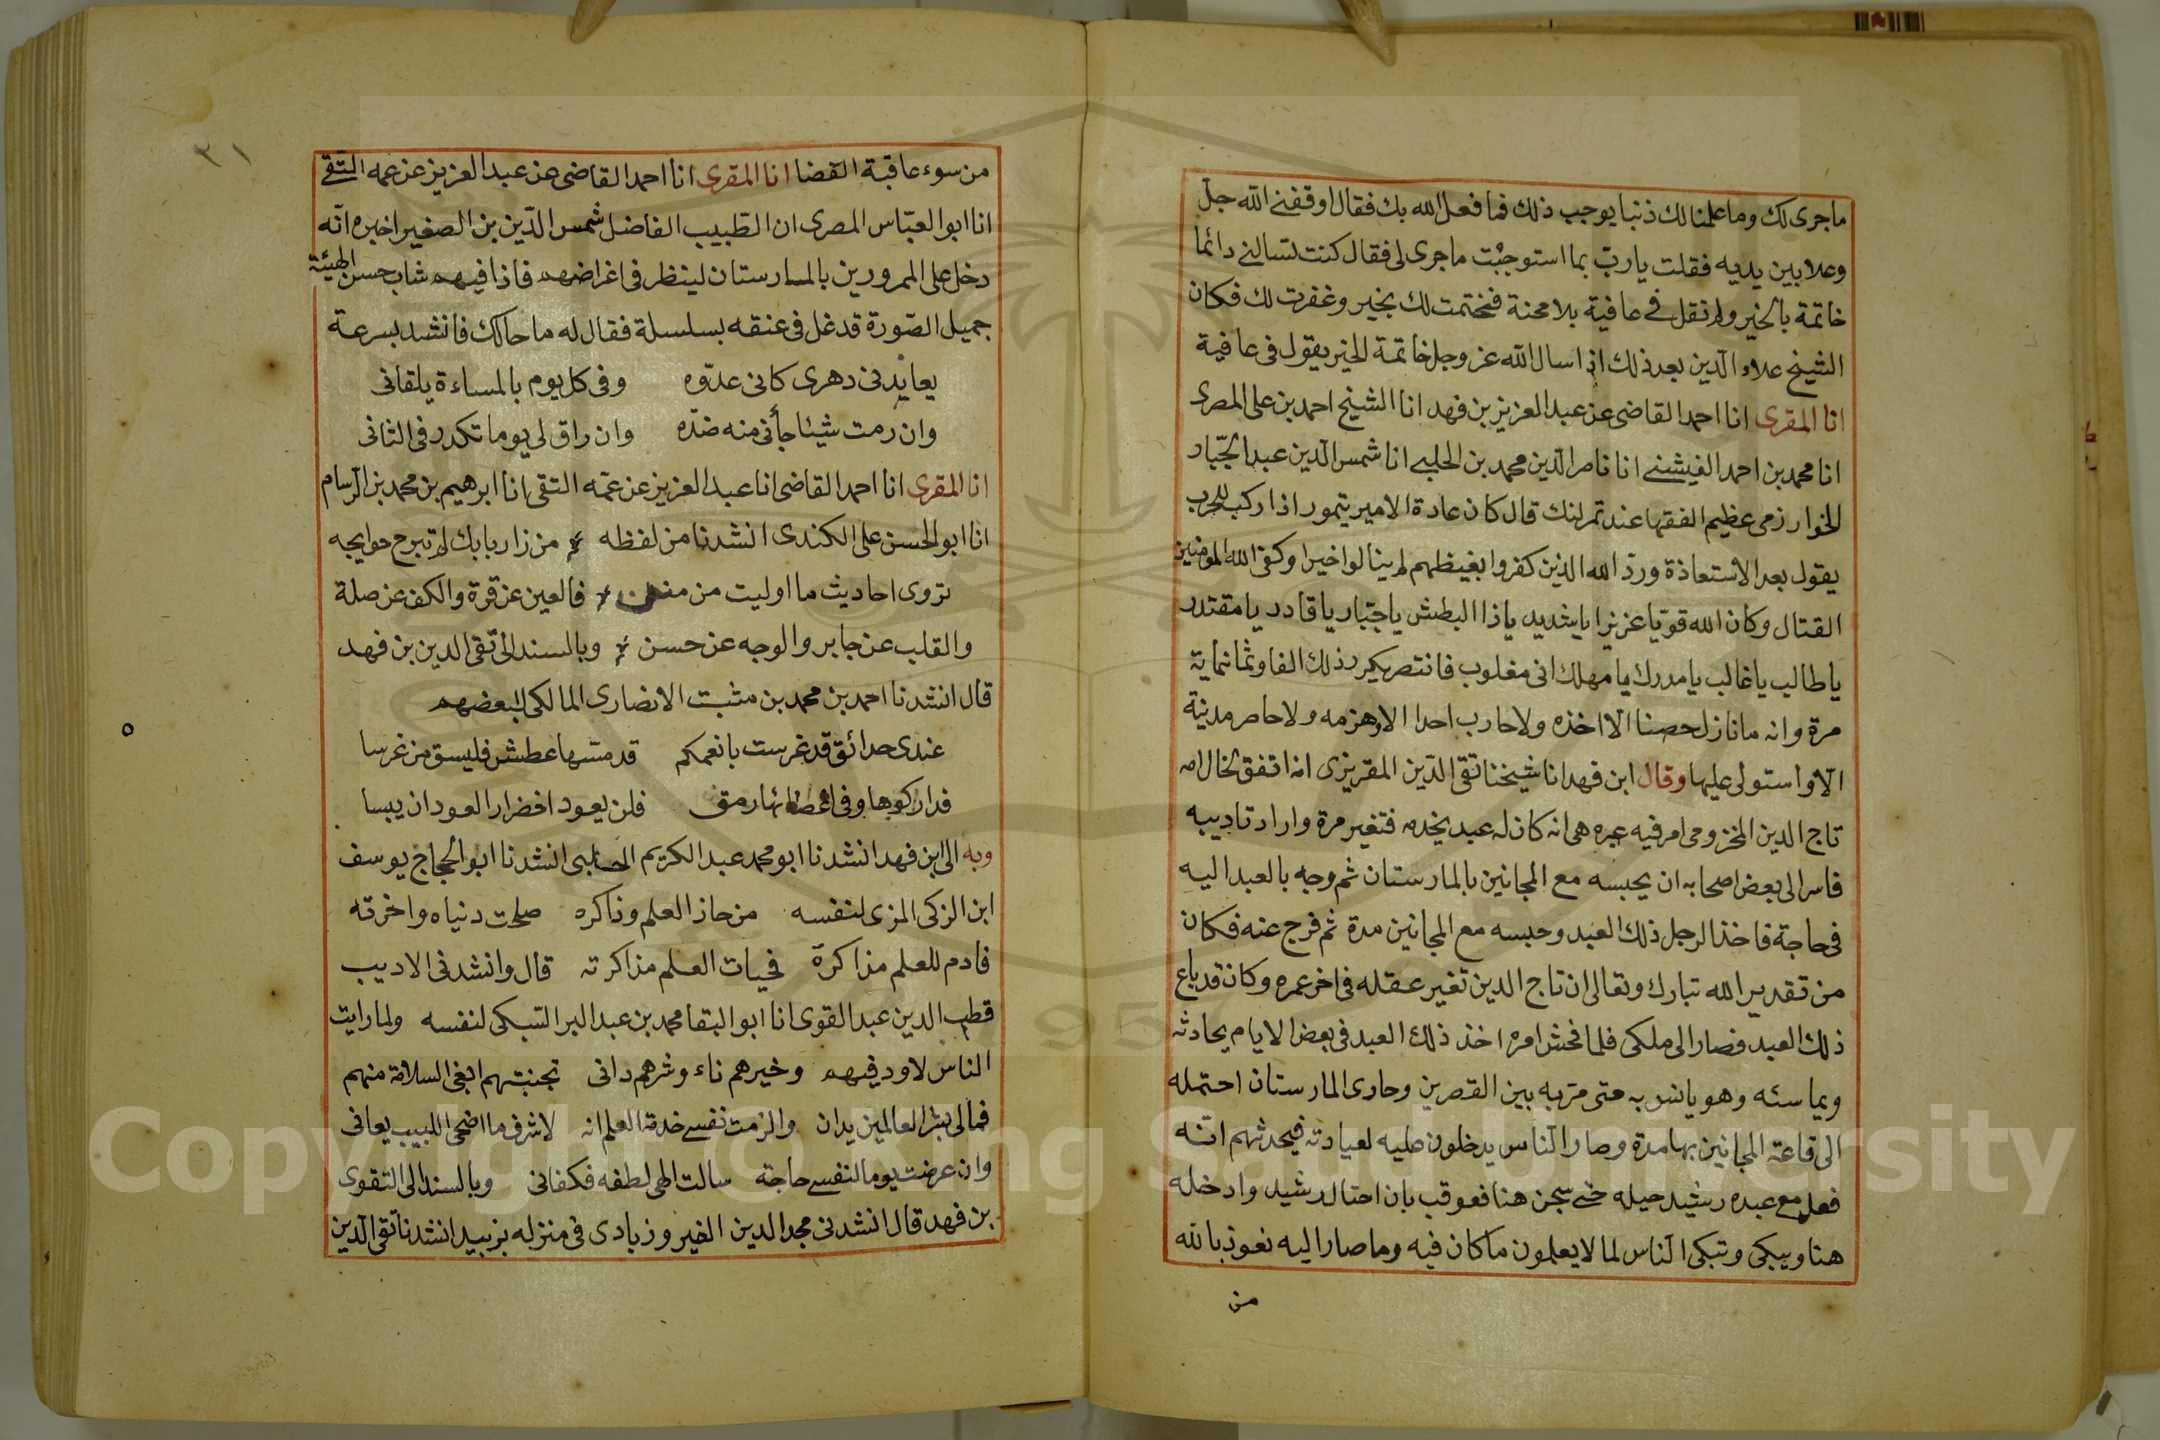 ماجرى لك وما علمنا لك ذنبا يوجب ذلك فما فعل الله بك فقال اوقفني الله جل
وعلا بين يديه فقلت يارب بما استوجبت ماجرى لى فقال كنت تسالني دائما
خاتمة بالخير ولم تقل في عافية بلا محنة فختمت لك بخير وغفرت لك فكان
الشيخ علاء الدين بعد ذلك اذا سال الله عز وجل خاتمة الخير يقول فى عافية
انا المقرى انا احمد القاضى عن عبد العزيز بن فهد انا الشيخ احمد بن على المصرى
انا محمد بن احمد الفيشني انا ناصر الدين محمد بن الحلبي انا شمس الدين عبد الجبار
الخوارزمى عظيم الفقها عند تمرلنك قال كان عادة الامير يتمور اذا ركب للحرب
يقول بعد الاستعاذة ورد الله الذين كفروا بغيظهم لم ينالوا خيرا وكفى الله المومنين
القتال وكان الله قويا عزيزا يا شديد ياذا البطش ياجبار يا قادر يا مقتدر
يا طالب يا غالب يا مدرك يا مهلك انى مغلوب فانتصر يكرر ذلك الفا وثمانماية
مرة وانه ما نازل حصنا الا اخذه ولا حارب احدا الا هزمه ولا حاصر مدينة
الا واستولى عليها وقال ابن فهد انا شيخنا تقى الدين المقريزى انه اتفق لخال امه
تاج الدين المخزومى امر فيه عبره هى انه كان له عبد يخدمه فتغير مرة واراد تاديبه
فاسر الى بعض اصحابه ان يحبسه مع المجانين بالمارستان ثم وجه بالعبد اليه
فى حاجة فاخذ الرجل ذلك العبد وحبسه مع المجانين مدة ثم فرج عنه فكان
من تقدير الله تبارك وتعالى ان تاج الدين تغير عقله فى اخر عمره وكان قد باع
ذلك العبد فصار الى ملكى فلما فحش امره اخذ ذلك العبد فى بعض الايام يحادثه
ويماسئه وهو يانس به متى مر به بين القصرين وحاذى المارستان احتمله
الى قاعة المجانين بها مدة وصار الناس يدخلون عليه لعيادته فيحدثهم انه
فعل مع عبده رشيد حيله حتى سجن هنا فعوقب بان احتال رشيد وادخله
هنا ويبكى وتبكى الناس لما لا يعلمون ما كان فيه وما صار اليه نعوذ بالله
من
٣١
من سوء عاقبة القضا انا المقرى انا احمد القاضى عن عبد العزيز عن عمه التقي
انا ابو العباس المصرى ان الطبيب الفاضل شمس الدين بن الصغير اخبره انه
دخل على الممرورين بالمارستان لينظر فى اغراضهم فاذا فيهم شاب حسن الهيئة
جميل الصورة قد غل فى عنقه بسلسلة فقال له ما حالك فانشد بسرعة
يعاندنى دهرى كانى عدوه وفى كل يوم بالمساءة يلقانى
وان رمت شيئا جأنى منه ضده وان راق لى يوما تكدر فى الثانى
انا المقرى انا احمد القاضى انا عبد العزيز عن عمه التقى انا ابرهيم بن محمد بن الرسام
انا ابو الحسن على الكندى انشدنا من لفظه من زار بابك لم تبرح حوايجه
تروى احاديث ما اوليت من منن فالعين عن قرة والكف عن صلة
والقلب عن جابر والوجه عن حسن وبالسند الى تقى الدين بن فهد
قال انشدنا احمد بن محمد بن مثبت الانصارى المالكى لبعضهم
عندى حدائق قد غرست بانعمكم قد مسها عطش فليسق من غرسا
فداركوها وفى اغصانها رمق فلن يعود اخضرار العود ان يبسا
وبه الى ابن فهد انشدنا ابو محمد عبد الكريم الحلبى انشدنا ابو الحجاج يوسف
ابن الزكى المزى لنفسه من حاز العلم وذاكره صلحت دنياه واخرته
فادم للعلم مذاكرة فحيات العلم مذاكرته قال وانشدنى الاديب
قطب الدين عبد القوى انا ابو البقا محمد بن عبد البر السبكى لنفسه ولما رايت
الناس لا ود فيهم وخيرهم ناء وشرهم دانى تجنبتهم ابغى السلامة منهم
فمالى بشر العالمين يدان والزمت نفسي خدمة العلم انه لاشرف ما اضحى اللبيب يعانى
وان عرضت يوما لنفسي حاجة سالت الهى لطفه فكفانى وبالسند الى التقوى
بن فهد قال انشدنى مجد الدين الفيروزبادى فى منزله بزبيد انشدنا تقى الدين
Copyright © King Saud University